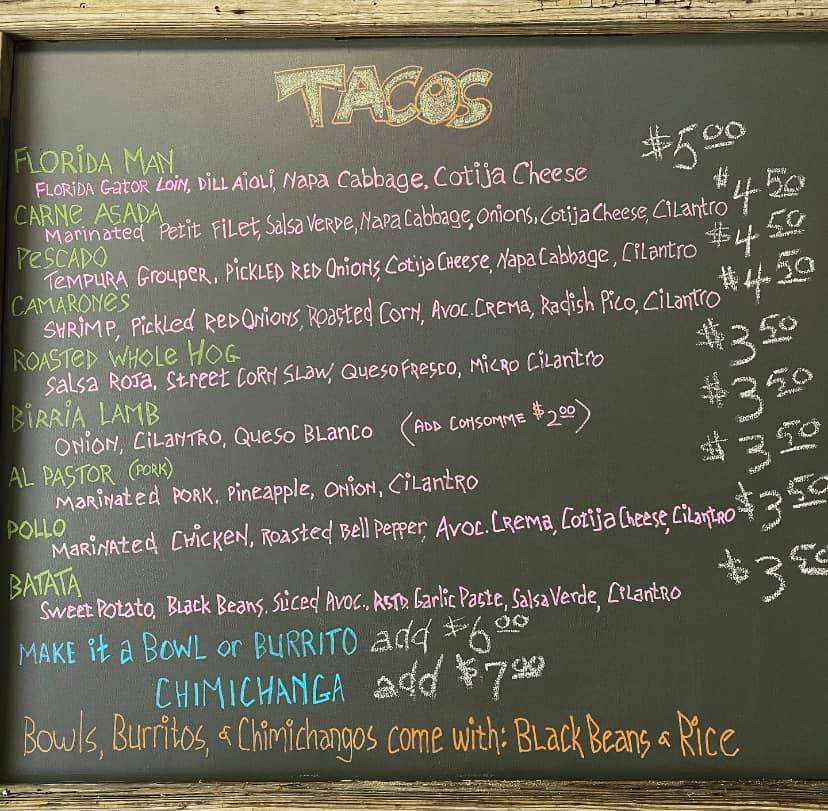 TACOS
FLORIDA MAN $5.00
FLORIDA GATOR LOIN, DILL AIOLI, NAPA CABBAGE, COTIJA CHEESE
CARNE ASADA $4.50
MARINATED PETIT FILET, SALSA VERDE, NAPA CABBAGE, ONIONS, COTIJA CHEESE, CILANTRO
PESCADO $4.50
TEMPURA GROUPER, PICKLED RED ONIONS, COTIJA CHEESE, NAPA CABBAGE, CILANTRO
CAMARONES $4.50
SHRIMP, PICKLED RED ONIONS, ROASTED CORN, AVOC. CREMA, RADISH PICO, CILANTRO
ROASTED WHOLE HOG $3.50
SALSA ROJA, STREET CORN SLAW, QUESO FRESCO, MICRO CILANTRO
BIRRIA LAMB $3.50
ONION, CILANTRO, QUESO BLANCO (ADD CONSOMME $2.00)
AL PASTOR (PORK) $3.50
MARINATED PORK, PINEAPPLE, ONION, CILANTRO
POLLO $3.50
MARINATED CHICKEN, ROASTED BELL PEPPER, AVOC. CREMA, COTIJA CHEESE, CILANTRO
BATATA $3.50
SWEET POTATO, BLACK BEANS, SLICED AVOC., RSTD. GARLIC PASTE, SALSA VERDE, CILANTRO
MAKE it a BOWL or BURRITO add $6.00
CHIMICHANGA add $7.00
Bowls, Burritos, & Chimichangos come with: Black Beans & Rice